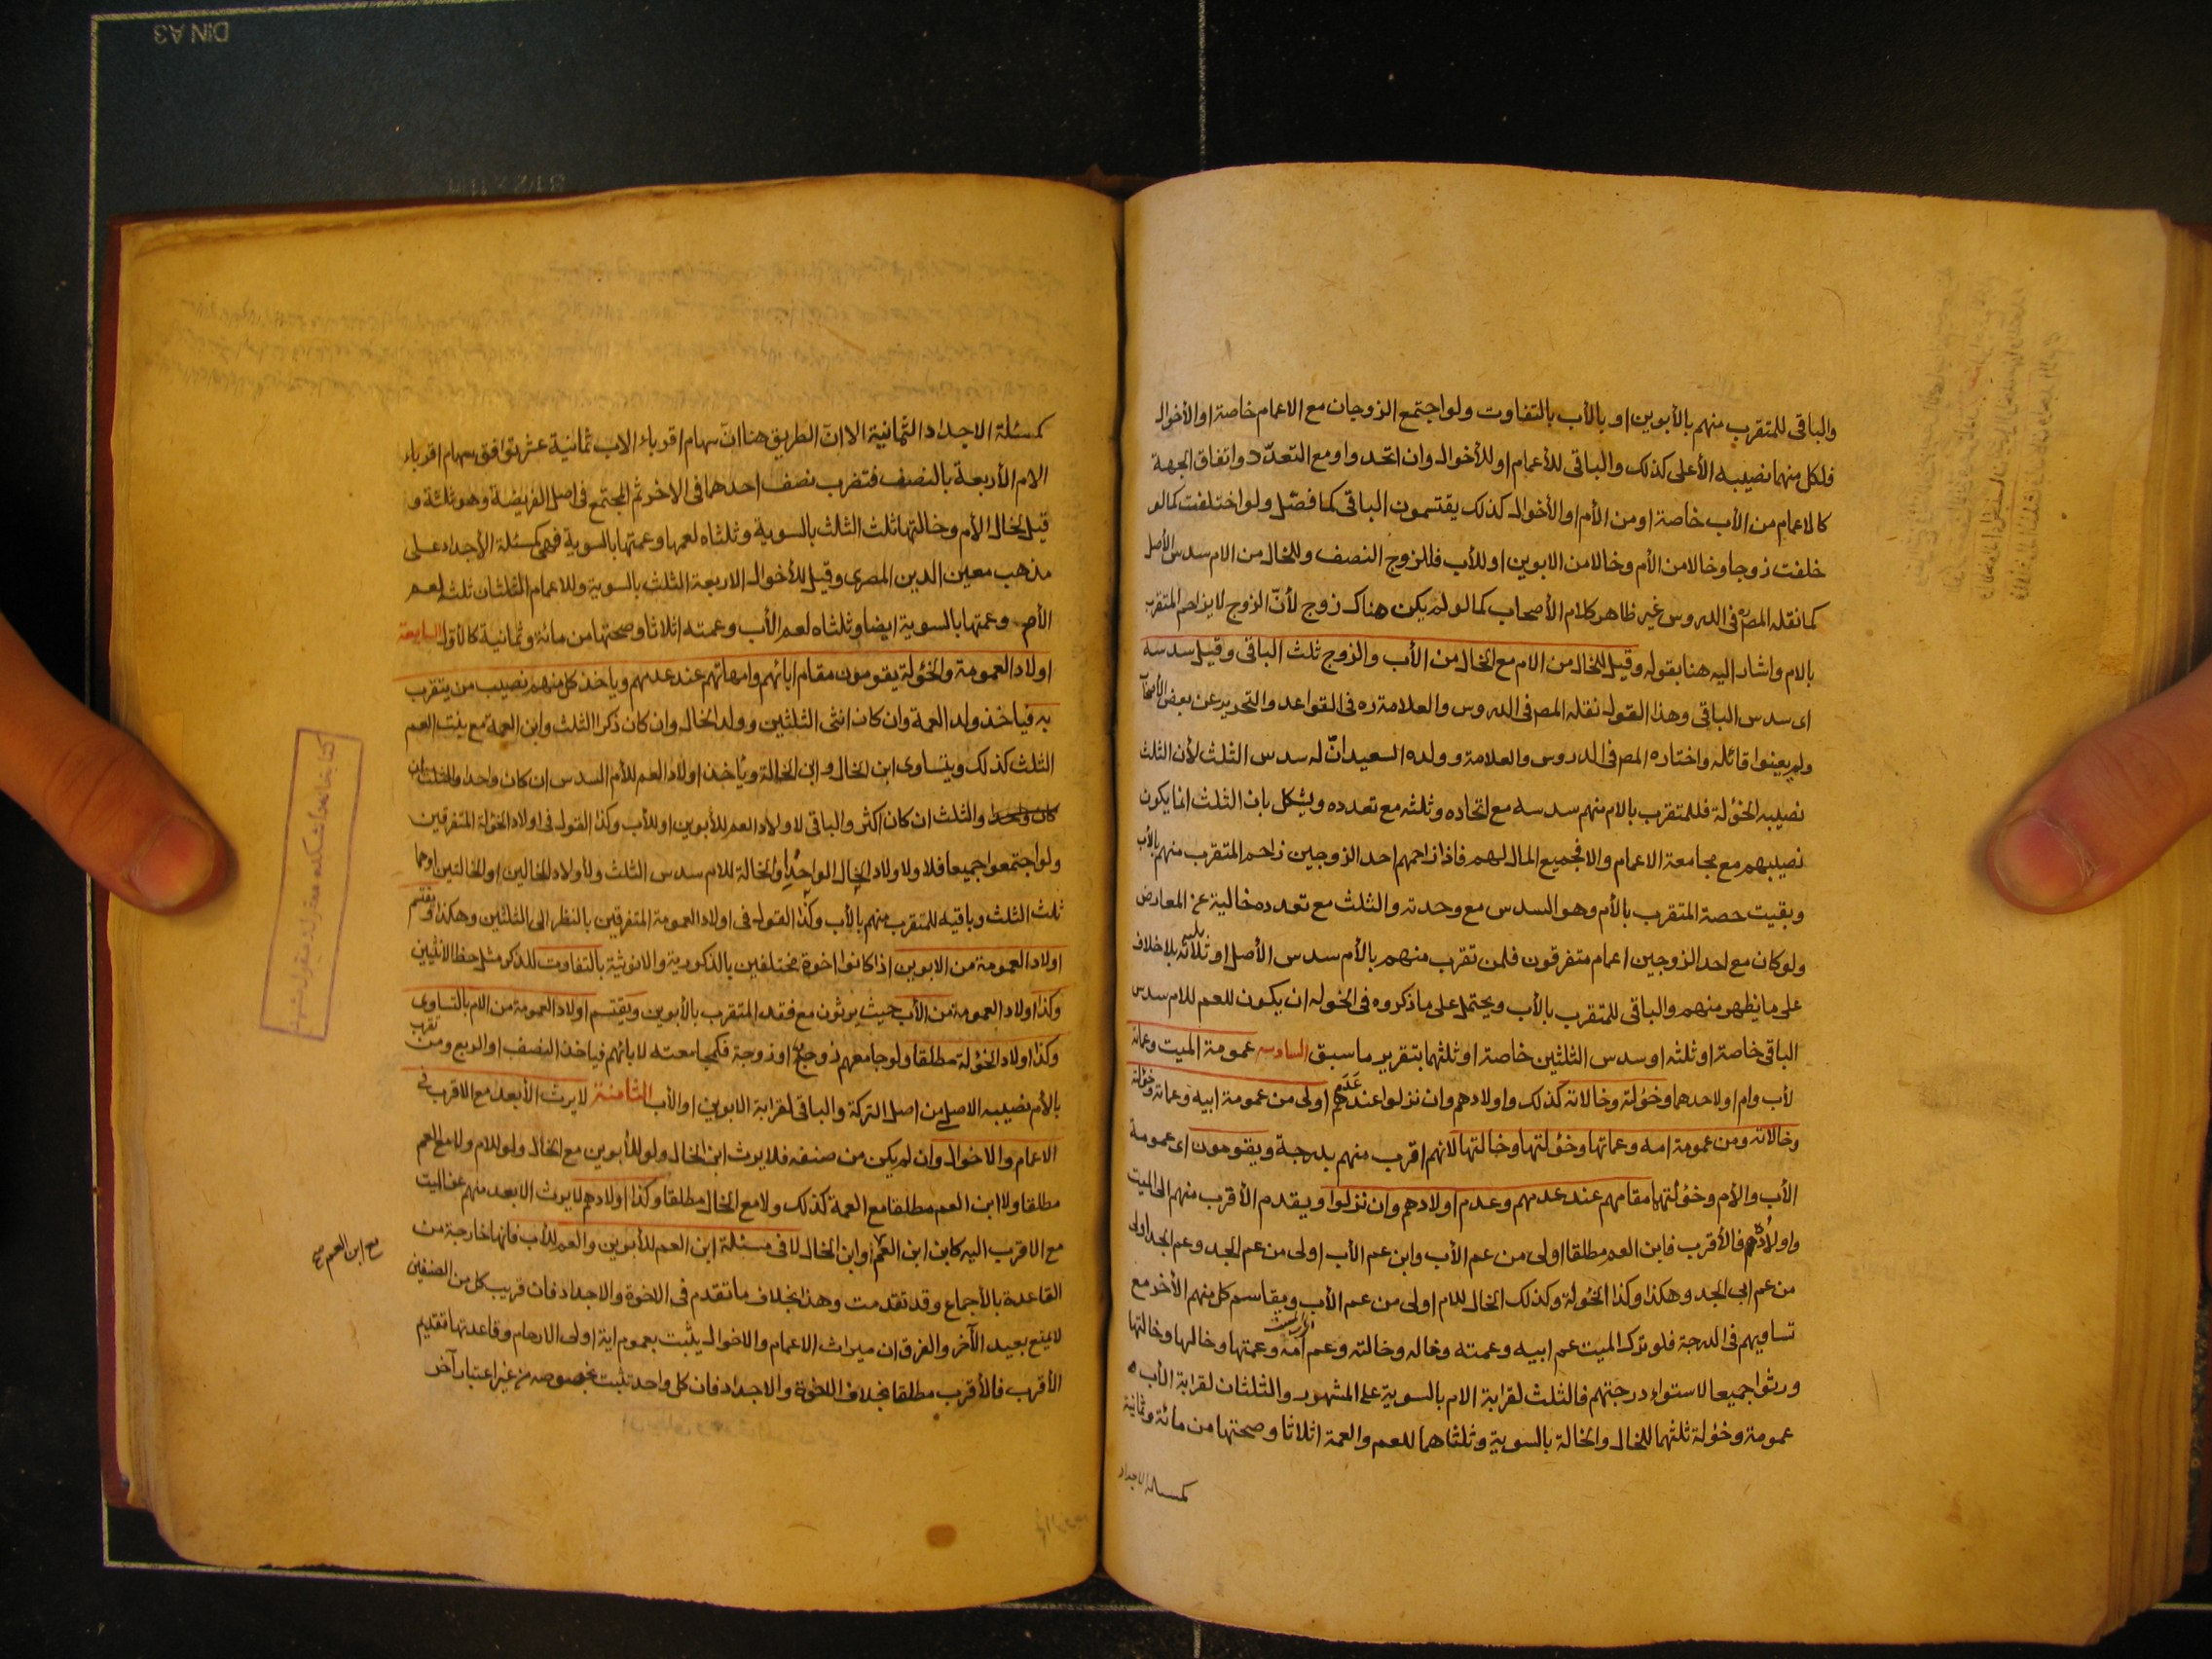 والباقى للمتقرب منهم بالأبوين او بالأب بالتفاوت ولو اجتمع الزوجان مع الاعمام خاصة او الأخوال
فلكل منهما نصيبه الأعلى كذلك والباقى للأعمام او للأخوال وان اتحدوا ومع التعدّد واتفاق الجهة
كالاعمام من الأب خاصة او من الأم او الأخوال كذلك يقتسمون الباقى كما فصّل ولو اختلفت كما لو
خلفت زوجا وخالا من الأم وخالا من الابوين او للأب فللزوج النصف وللخال من الام سدس الأصل
كما نقله المصره فى الدروس غير ظاهر كلام الأصحاب كما لو لم يكن هناك زوج لأنّ الزوج لا يزاحم المتقرب
بالام واشار اليه هنا بقوله وقيل للخال من الام مع الخال من الأب والزوج ثلث الباقى وقيل سدسه
اى سدس الباقى وهذا القول نقله المص فى الدروس والعلامة ره فى القواعد والتحرير عن بعض الأصحاب
ولم يعينوا قائله واختاره المص فى الدروس والعلامة وولده السعيد انّ له سدس الثلث لأن الثلث
نصيب الخؤلة فللمتقرب بالام منهم سدسه مع اتحاده وثلثه مع تعدده ويشكل بان الثلث انما يكون
نصيبهم مع مجامعة الاعمام والا فجميع المال لهم فاذا زاحمهم احد الزوجين زاحم المتقرب منهم بالأب
وبقيت حصة المتقرب بالأم وهو السدس مع وحدته والثلث مع تعدده خالية عن المعارض
ولو كان مع احد الزوجين اعمام متفرقون فلمن تقرب منهم بالأم سدس الأصل او ثلثه بلا خلاف
على ما يظهر منهم والباقى للمتقرب بالأب ويحتمل على ما ذكروه فى الخوله ان يكون للعم للام سدس
الباقى خاصة او ثلثه او سدس الثلثين خاصة او ثلثهما بتقرير ما سبق السادسه عمومة الميت وعماته
لأب وام او لاحدهما وخؤلته وخالاته كذلك واولادهم وان نزلوا عند عَدَمهم اولى من عمومة ابيه وعماته وخؤلته
وخالاته ومن عمومة امه وعماتها وخؤلتها وخالتها لانهم اقرب منهم بدرجة ويقومون اى عمومة
الأب والأم وخؤلتهما مقامهم عند عدمهم وعدم اولادهم وان نزلوا ويقدم الأقرب منهم الى الميت
واولادهم فالأقرب فابن العم مطلقا اولى من عم الأب وابن عم الأب اولى من عم الجد وعم الجد اولى
من عم ابى الجد وهكذا وكذا الخؤلة وكذلك الخال للام اولى من عم الأب ويقاسم كل منهم الأخر مع
تساويهم فى الدرجة فلو ترك الميت عم ابيه وعمته وخاله وخالته وعم امه وعمتها وخالها وخالتها
ورثوا جميعا لاستواء درجتهم فالثلث لقرابة الام بالسوية على المشهور والثلثان لقرابة الأب
عمومة وخؤلة ثلثهما للخال والخالة بالسوية وثلثاهما للعم والعمة اثلاثا وصحتها من مائة وثمانية
كمسئلة الاجداد
كمسئلة الاجداد الثمانية الا انّ الطريق هنا انّ سهام اقرباء الاب ثمانية عشر توافق سهام اقرباء
الام الأربعة بالنصف فتضرب نصف احدهما فى الاخر ثم المجتمع فى اصل الفريضة وهو ثلثة و
قيل لخال الأم وخالتها ثلث الثلث بالسوية وثلثاه لعمها وعمتها بالسوية فهى كمسئلة الأجداد على
مذهب معين الدين المصرى وقيل للأخوال الاربعة الثلث بالسوية وللاعمام الثلثان ثلثه لعم
الأم وعمتها بالسوية ايضا وثلثاه لعم الأب وعمته اثلاثا وصحتها من مائة وثمانية كالأول السابعة
اولاد العمومة والخؤلة يقومون مقام ابائهم وامهاتهم عند عدمهم ويأخذ كل منهم نصيب من يتقرب
به فيأخذ ولد العمة وان كان انثى الثلثين وولد الخال وان كان ذكرا الثلث وابن العمة مع بنت العم
الثلث كذلك ويتساوى ابن الخال وابن الخالة ويأخذ اولاد العم للأم السدس ان كان واحدا والثلث ان
كان واحدا والثلث ان كان اكثر والباقى لاولاد العم للأبوين او للأب وكذا القول فى اولاد الخؤلة المتفرقين
ولو اجتمعوا جميعا فلاولاد الخال الواحد او الخالة للام سدس الثلث ولأولاد الخالين او الخالتين او هما
ثلث الثلث وباقيه للمتقرب منهم بالأب وكذا القول فى اولاد العمومة المتفرقين بالنظر الى الثلثين وهكذا ويقتسم
اولاد العمومة من الابوين اذا كانوا اخوة مختلفين بالذكورية والانوثية بالتفاوت للذكر مثل حظ الانثيين
وكذا اولاد العمومة من الأب حيث يرثون مع فقد المتقرب بالأبوين ويقتسم اولاد العمومة من الام بالتساوى
وكذا اولاد الخؤلة مطلقا ولو جامعهم زوج او زوجة فكمجامعته لابائهم فيأخذ النصف او الربع ومن تقرب
بالأم نصيبه الاصلى من اصل التركة والباقى لقرابة الابوين او الأب الثامنة لا يرث الأبعد مع الاقرب فى
الاعمام والاخوال وان لم يكن من صنفه فلا يرث ابن الخال ولو للأبوين مع الخال ولو للام ولا مع العم
مطلقا ولا ابن العم مطلقا مع العمة كذلك ولا مع الخال مطلقا وكذا اولادهم لا يرث الابعد منهم عن الميت
مع الاقرب اليه كابن ابن العم او ابن الخال الا فى مسئلة ابن العم للأبوين والعم للأب فانها خارجة من
مع ابن العم صح
القاعدة بالأجماع وقد تقدمت وهذا بخلاف ما تقدم فى الاخوة والاجداد فان قريب كل من الصنفين
لا يمنع بعيد الآخر والفرق ان ميراث الاعمام والاخوال يثبت بعموم اية اولى الارحام وقاعدتها تقديم
الأقرب فالأقرب مطلقا بخلاف الاخوة والاجداد فان كل واحد ثبت بخصوصه من غير اعتبار آخر
DIN A3